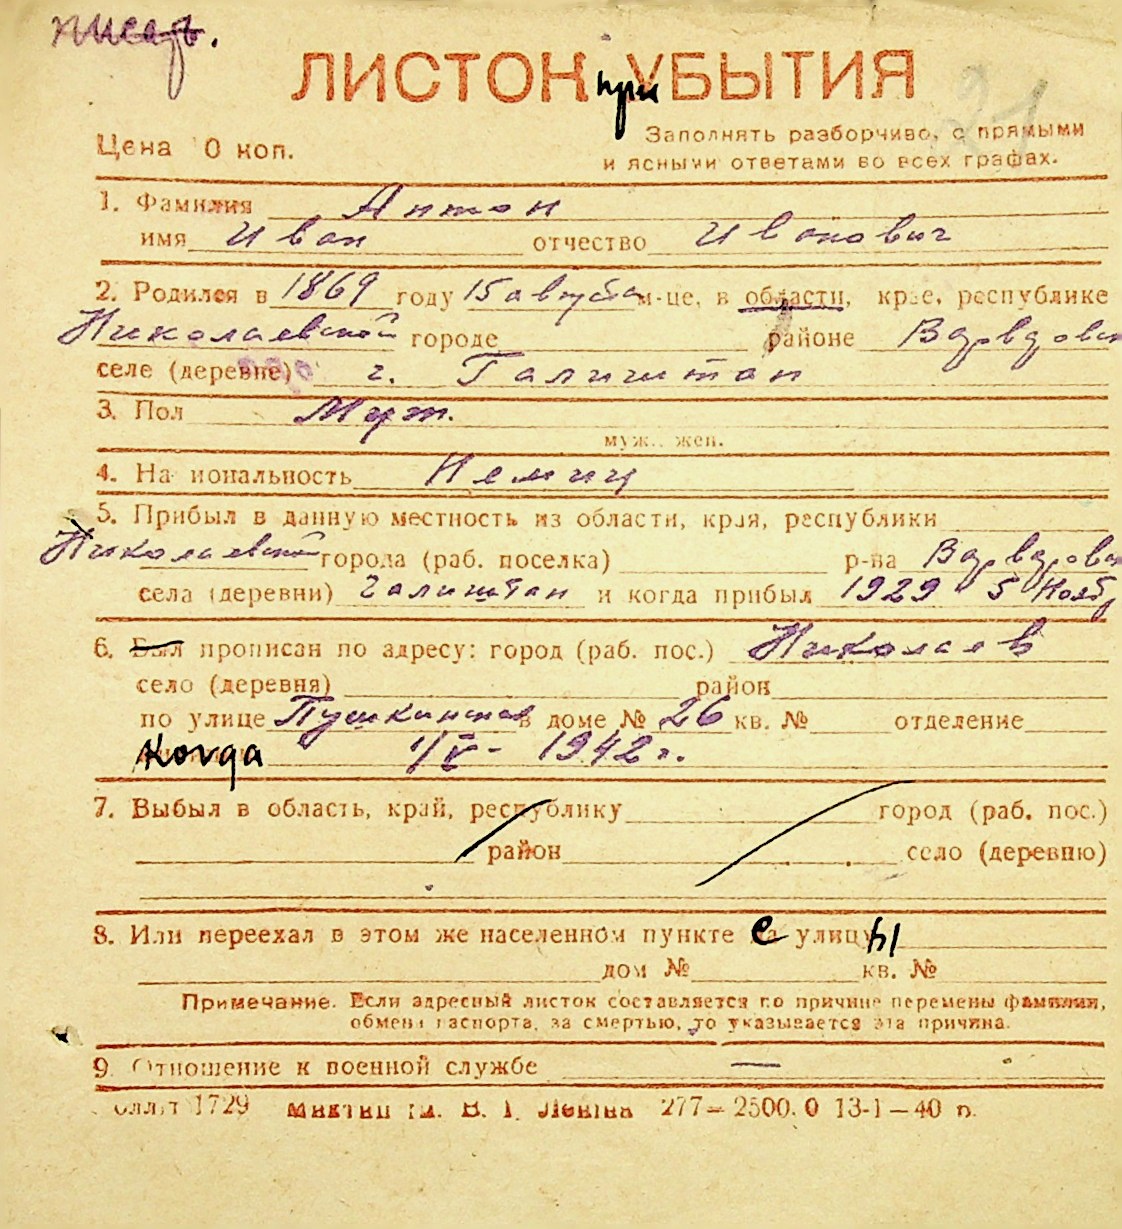 писарь.
ЛИСТОК при УБЫТИЯ
21
Цена 0 коп.
Заполнять разборчиво, с прямыми
и ясными ответами во всех графах.
1. Фамилия Антон
имя Иван отчество Иванович
2. Родился в 1869 году 15 августа м-це, в области, крае, республике
Николаевской городе районе Варваровск
селе (деревне) г. Галиштан
3. Пол Муж.
муж., жен.
4. Национальность Немец
5. Прибыл в данную местность из области, края, республики
Николаевской города (раб. поселка) р-на Варваровск
села (деревни) Галиштан и когда прибыл 1929 5 Нояб
6. Был прописан по адресу: город (раб. пос.) Николаев
село (деревня) район
по улице Пушкинской в доме № 26 кв. № отделение
когда 1/V - 1942 г.
7. Выбыл в область, край, республику город (раб. пос.)
район село (деревню)
8. Или переехал в этом же населенном пункте с улицы
дом № кв. №
Примечание. Если адресный листок составляется по причине перемены фамилии,
обмена паспорта, за смертью, то указывается эта причина.
9. Отношение к военной службе —
1729 им. В. І. Леніна 277—2500. 0 13-1—40 п.